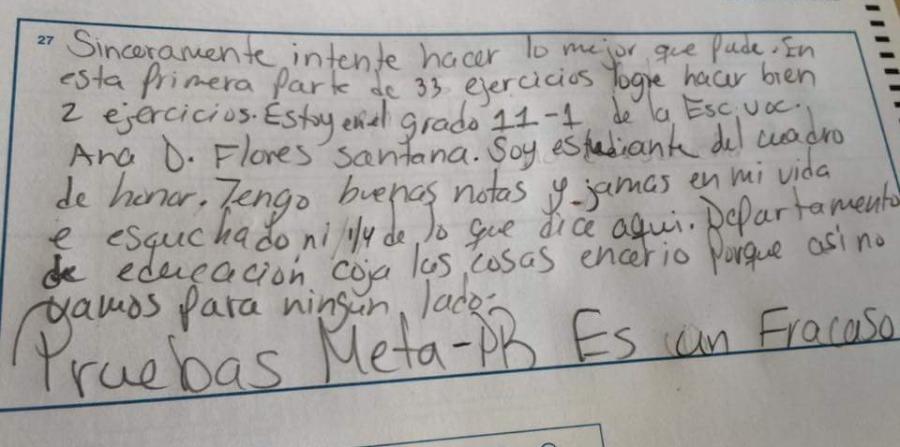 27 Sinceramente intente hacer lo mejor que pude. En
esta primera parte de 33 ejercicios logre hacer bien
2 ejercicios. Estoy en el grado 11-1 de la Esc. Voc.
Ana D. Flores santana. Soy estudiante del cuadro
de honor. Tengo buenas notas y jamas en mi vida
e esquchado ni 1/4 de lo que dice aqui. Departamento
de educacion coja las cosas encerio porque asi no
vamos para ningun lado.
Pruebas Meta-PR Es un Fracaso